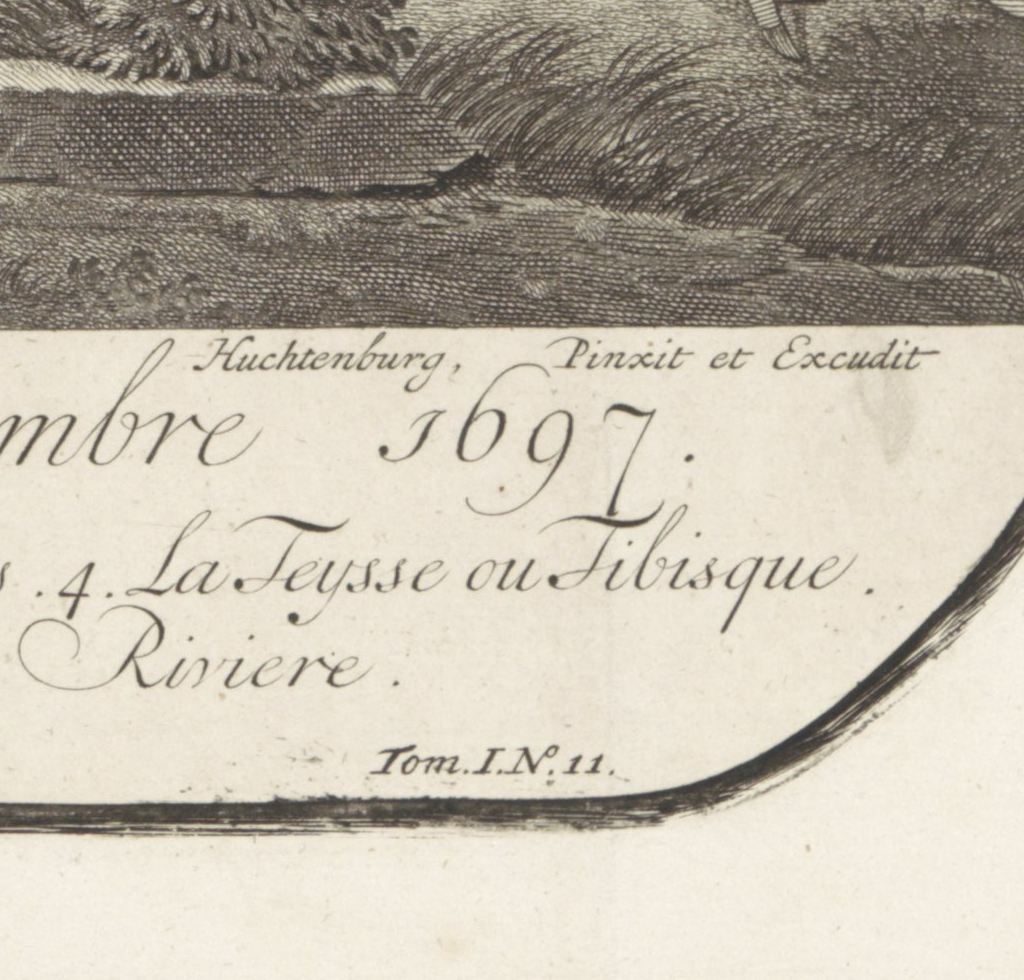 Huchtenburg, Pinxit et Excudit
mbre 1697.
s . 4. La Teysse ou Tibisque.
Riviere.
Tom. I. No. 11.